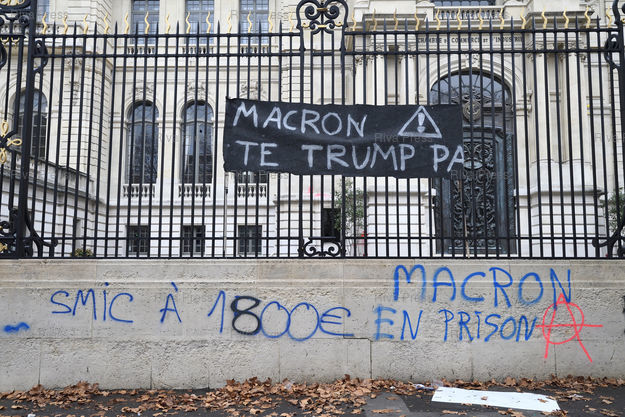 MACRON ⚠
TE TRUMP PA
MACRON
SMIC À 1800€ EN PRISON
Riva Press